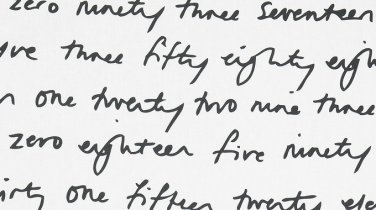 zero ninety three seventeen
three fifty eighty
one twenty two nine three
zero eighteen five ninety
one fifteen twenty